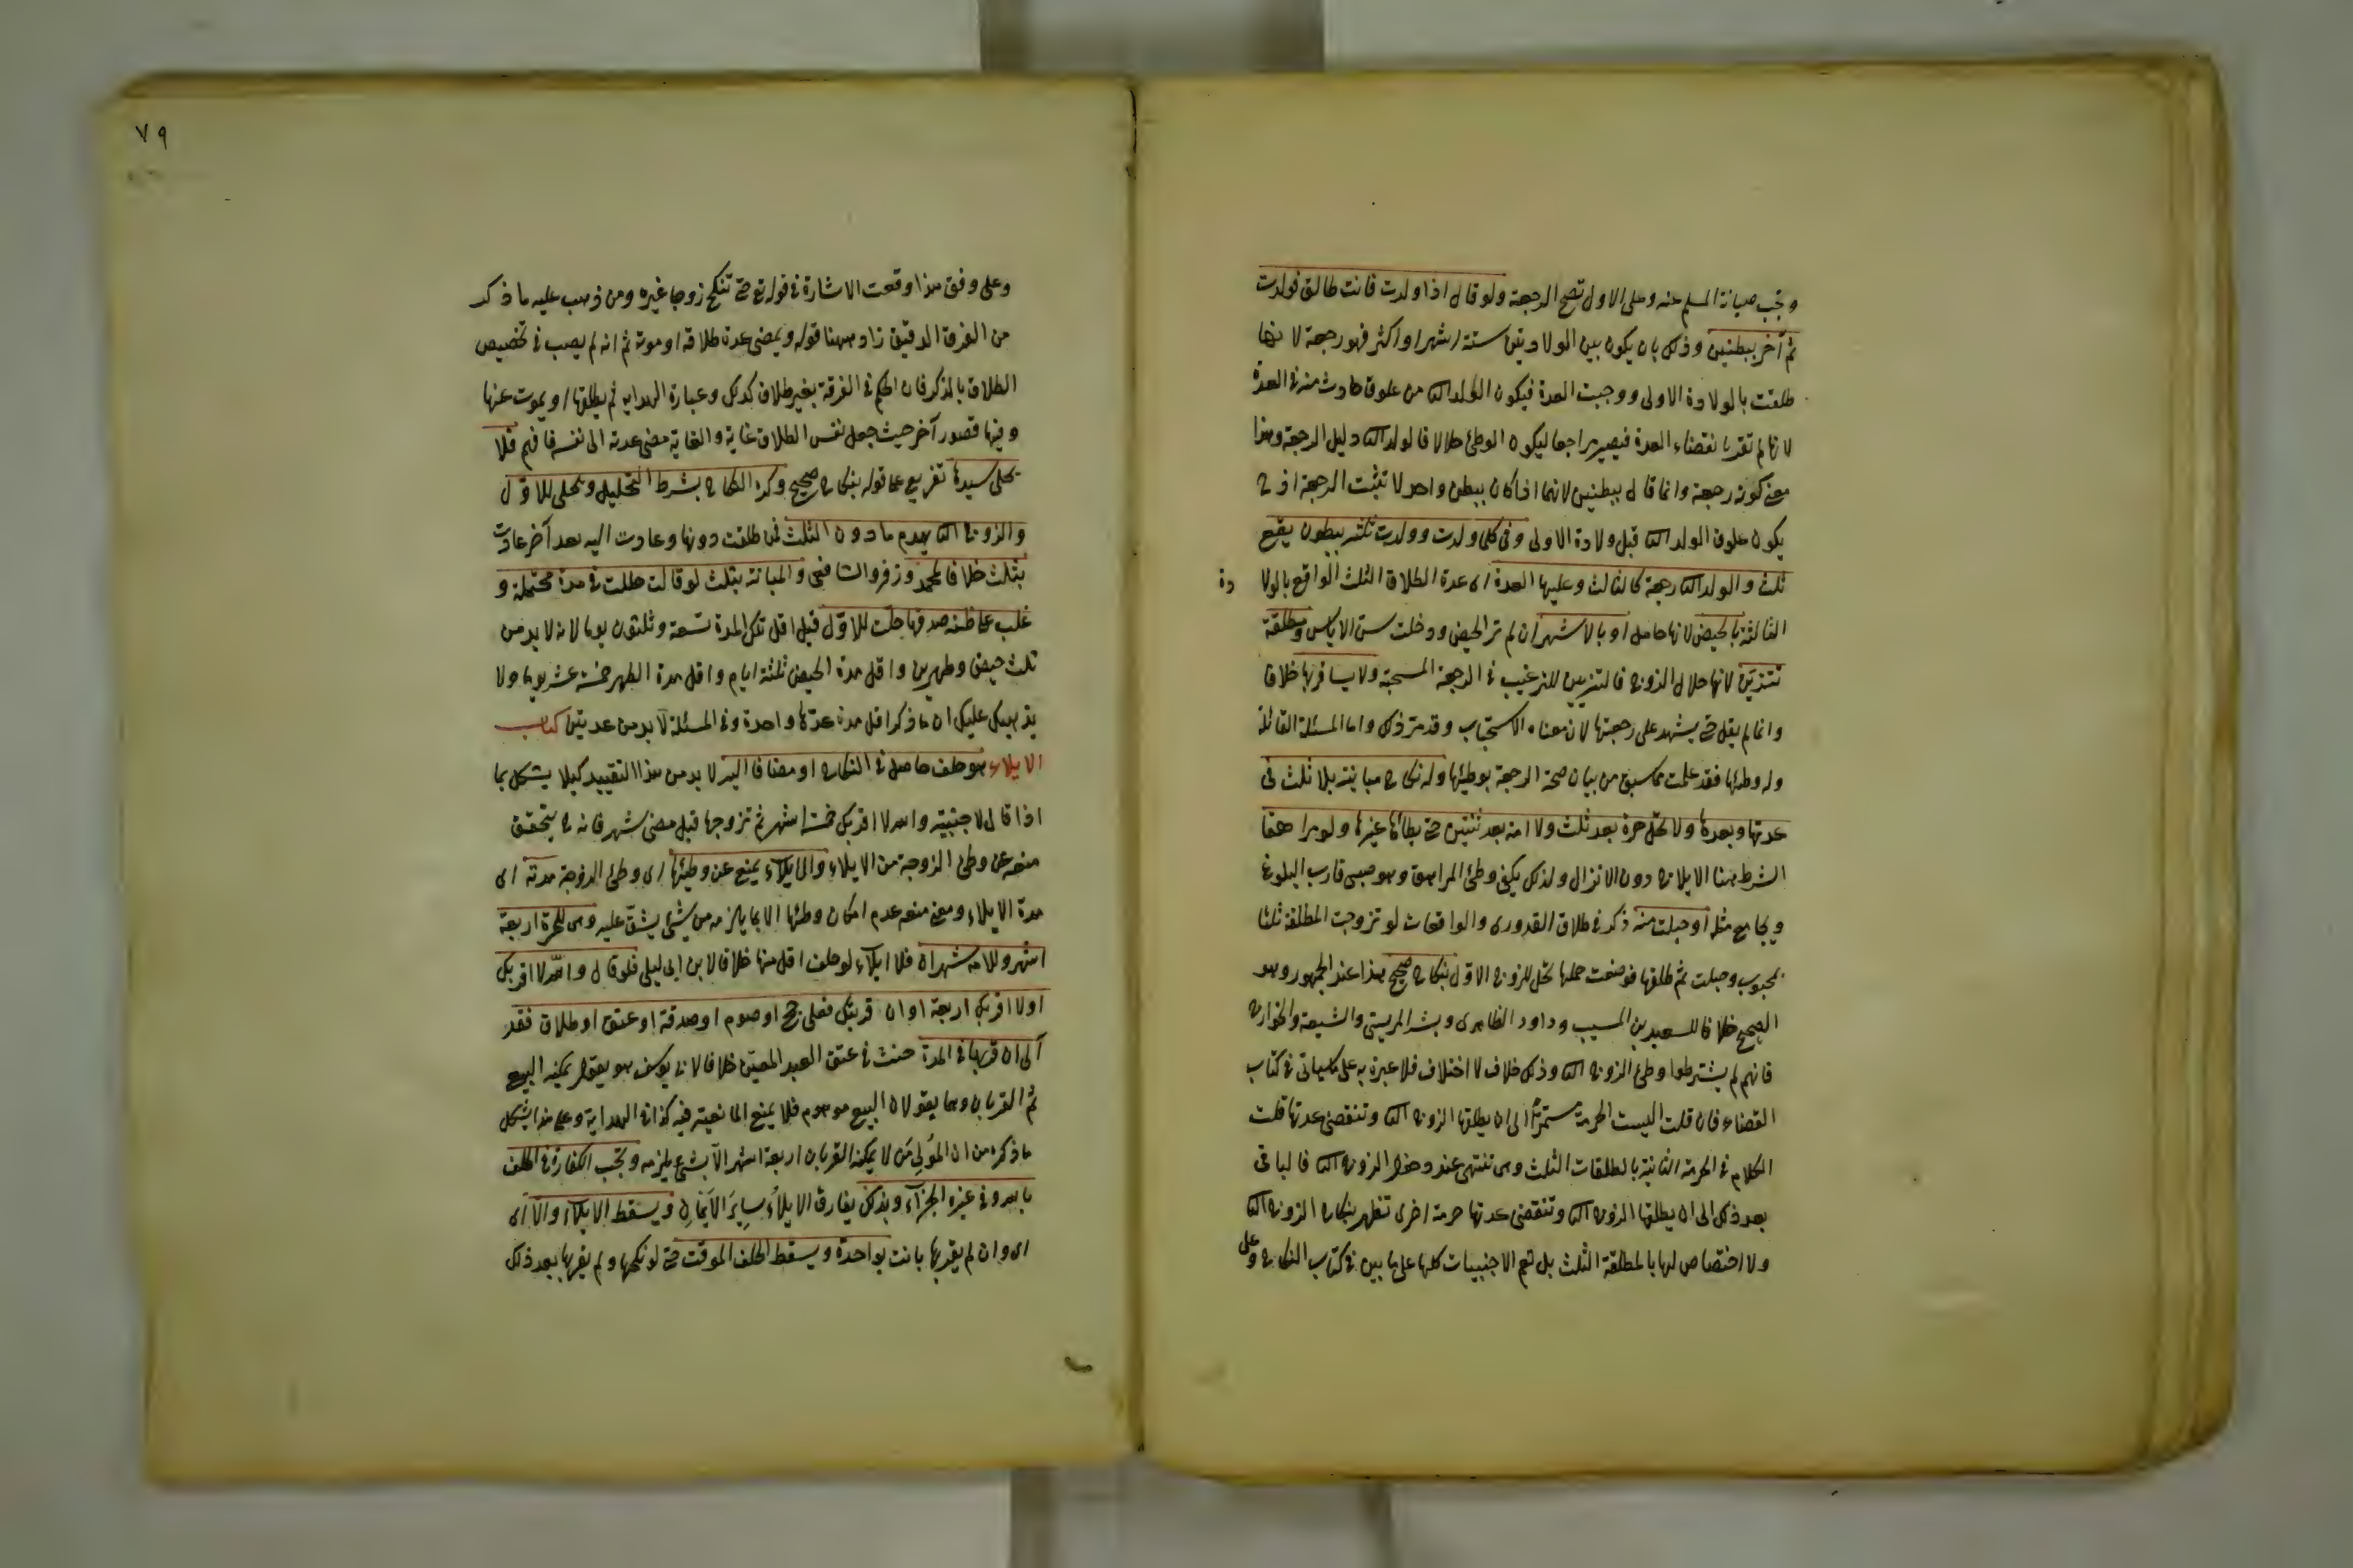 وجب صيانة المسلم عنه وعلى الاول تصح الرجعة ولو قال اذا ولدت فانت طالق فولدت
ثم آخر ببطنين وذلك بان يكون بين الولادتين ستة اشهر او اكثر فهو رجعة لانها
طلقت بالولادة الاولى ووجبت العدة فيكون الولد الثا من علوق حادث منه في العدة
لانها لم تقر بانقضاء العدة فيصير مراجعا ليكون الوطئ حلالا فالولد الثا دليل الرجعة وهذا
معنى كونه رجعة وانما قال ببطنين لانهما اذا كان ببطن واحد لا تثبت الرجعة اذ ح
يكون علوق الولد الثا قبل ولادة الاولى وفي كلما ولدت وولدت ثلثة ببطون يقع
ثلث والولد الثا رجعة كالثالث وعليها العدة اى عدة الطلاق الثلث الواقع بالولادة
الثالثة بالحيض لانها حامل او بالاشهر ان لم تر الحيض ودخلت سن الاياس ومطلقة
تتزين لانها حلال للزوج فالتزيين للترغيب في الرجعة المستحبة ولا يسافر بها خلافا
وانما لم يقل حتى يشهد على رجعتها لان معناه الاستحباب وقد مر ذلك واما المسئلة القائلة
وله وطئها فقد علمت مما سبق من بيان صحة الرجعة بوطئها وله نكاح مبانته بلا ثلث في
عدتها وبعدها ولا تحل حرة بعد ثلث ولا امة بعد ثنتين حتى يطأها غيره ولو مراهقا
الشرط هنا الايلاج دون الانزال ولذلك يكفى وطئ المراهق وهو صبى قارب البلوغ
ويجامع مثله او حبلت منه ذكر في طلاق القدورى والواقعات لو تزوجت المطلقة ثلثا
بمجبوب وحبلت ثم طلقها فوضعت حملها تحل للزوج الاول بنكاح صحيح هذا عند الجمهور وهو
الصحيح خلافا لسعيد بن المسيب وداود الظاهرى وبشر المريسى والشيعة والخوارج
فانهم لم يشترطوا وطئ الزوج الثا وذلك خلاف لا اختلاف فلا عبرة به على ما سيأتى في كتاب
القضاء فان قلت اليست الحرمة مستمرة الى ان يطلقها الزوج الثا وتنقضى عدتها قلت
الكلام في الحرمة الثابتة بالطلقات الثلث وهى تنتهى عند دخول الزوج الثا فالباقى
بعد ذلك الى ان يطلقها الزوج الثا وتنقضى عدتها حرمة اخرى تظهر بنكاح الزوج الثا
ولا اختصاص لها بالمطلقة الثلث بل تعم الاجنبيات كلها على ما بين في كتاب النكاح وعلى
٧٩
وعلى وفق هذا وقعت الاشارة في قوله تع حتى تنكح زوجا غيره ومن ذهب عليه ما ذكر
من الفرق الدقيق زاد ههنا قوله ويمضى عدة طلاقه او موته ثم انه لم يصب في تخصيص
الطلاق بالذكر فان الحكم في الفرقة بغير طلاق كذلك وعبارة الهداية ثم يطلقها او يموت عنها
وفيها قصور آخر حيث جعل نفس الطلاق غاية والغاية مضى عدته الى نفسه فافهم فلا
يحل سيدها تفريع على قوله بنكاح صحيح وكره النكاح بشرط التحليل ويحل للاول
والزوج الثا يهدم ما دون الثلث فمن طلقت دونها وعادت اليه بعد آخر عادت
بثلث خلافا لمحمد وزفر والشافعى والمبانة بثلث لو قالت حللت في مدة محتملة و
غلب على ظنه صدقها حلت للاول قيل اقل تلك المدة تسعة وثلثون يوما لانه لا بد من
ثلث حيض وطهرين واقل مدة الحيض ثلثة ايام واقل مدة الطهر خمسة عشر يوما ولا
يذهب عليك ان ما ذكر اقل مدة عدة واحدة وفي المسئلة لا بد من عدتين كتاب
الايلاء هو حلف حاصل في النكاح او مضافا اليه لا بد من هذا التقييد كيلا يشكل بما
اذا قال لاجنبية والله لا اقربك خمسة اشهر ثم تزوجها قبل مضى شهر فانه ح يتحقق
منعه عن وطئ الزوجة من الايلاء والايلاء يمنع عن وطئها اى وطئ الزوجة مدته اى
مدة الايلاء ومعنى منعه عدم امكان وطئها الا بما يلزمه من شئ يشق عليه وهى للحرة اربعة
اشهر وللامة شهران فلا ايلاء لو حلف اقل منها خلافا لابن ابى ليلى فلو قال والله لا اقربك
او لا اقربك اربعة او ان قربتك فعلى حج او صوم او صدقة او عتق او طلاق فقد
آلى ان قربها في المدة حنث في عتق العبد المعين خلافا لابى يوسف هو يقول يمكنه البيع
ثم القربان وهما يقولان البيع موهوم فلا يمنع المانعية فيه كذا في الهداية وعلى هذا يشكل
ما ذكره من ان المولى من لا يمكنه القربان اربعة اشهر الا بشئ يلزمه وتجب الكفارة في الحلف
بالله وفي غيره الجزاء وبذلك يفارق الايلاء سائر الايمان ويسقط الايلاء والا اى
اى وان لم يقربها بانت بواحدة ويسقط الحلف الموقت حتى لو نكحها ولم يقربها بعد ذلك